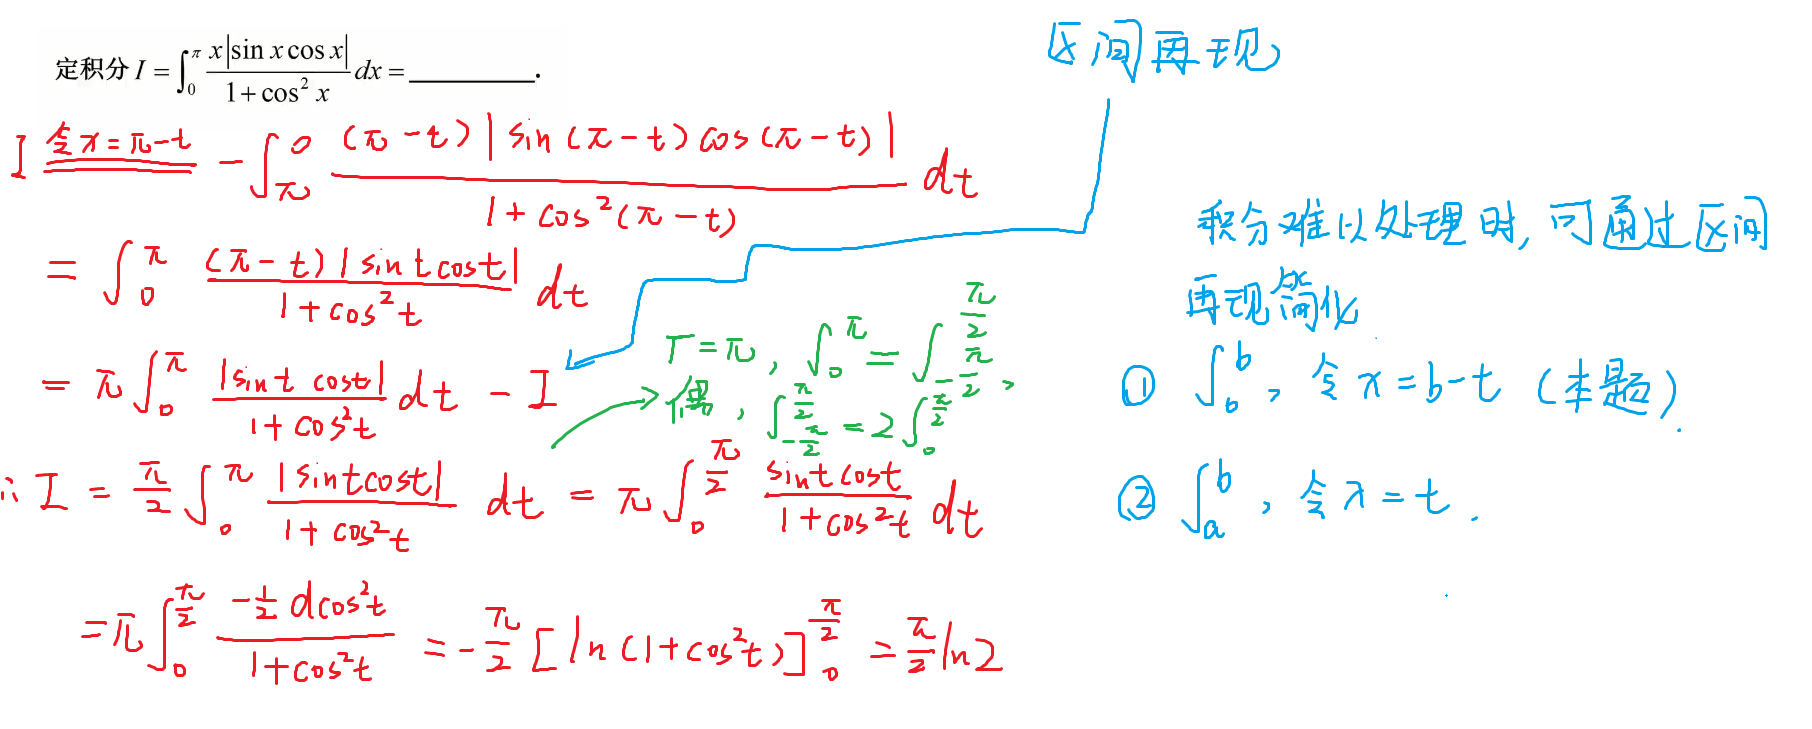 定积分 I = ∫_0^π x|sin x cos x| / (1 + cos² x) dx = ________.
区间再现
I 令x=π-t = -∫_π^0 (π-t)|sin(π-t)cos(π-t)| / (1+cos²(π-t)) dt
= ∫_0^π (π-t)|sint cost| / (1+cos²t) dt
= π∫_0^π |sint cost| / (1+cos²t) dt - I
T=π, ∫_0^π = ∫_{-π/2}^{π/2},
偶, ∫_{-π/2}^{π/2} = 2∫_0^{π/2}
∴ I = π/2 ∫_0^π |sintcost| / (1+cos²t) dt = π∫_0^{π/2} sint cost / (1+cos²t) dt
= π∫_0^{π/2} -½ dcos²t / (1+cos²t) = -π/2 [ln(1+cos²t)]_0^{π/2} = π/2 ln2
积分难以处理时,可通过区间
再现简化
① ∫_0^b, 令x=b-t (本题).
② ∫_a^b, 令x=t.